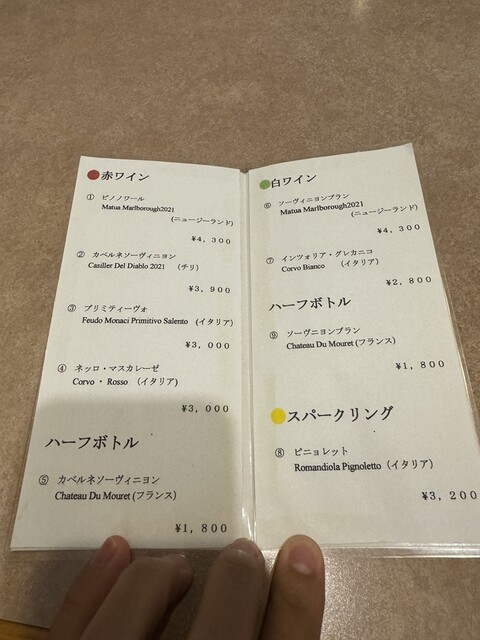 赤ワイン
① ピノノワール
Matua Marlborough2021
(ニュージーランド)
¥4,300
② カベルネソーヴィニヨン
Casiller Del Diablo 2021 (チリ)
¥3,900
③ プリミティーヴォ
Feudo Monaci Primitivo Salento (イタリア)
¥3,000
④ ネッロ・マスカレーゼ
Corvo・Rosso (イタリア)
¥3,000
ハーフボトル
⑤ カベルネソーヴィニヨン
Chateau Du Mouret (フランス)
¥1,800
白ワイン
⑥ ソーヴィニヨンブラン
Matua Marlborough2021
(ニュージーランド)
¥4,300
⑦ インツォリア・グレカニコ
Corvo Bianco (イタリア)
¥2,800
ハーフボトル
⑨ ソーヴニヨンブラン
Chateau Du Mouret (フランス)
¥1,800
スパークリング
⑧ ピニョレット
Romandiola Pignoletto (イタリア)
¥3,200